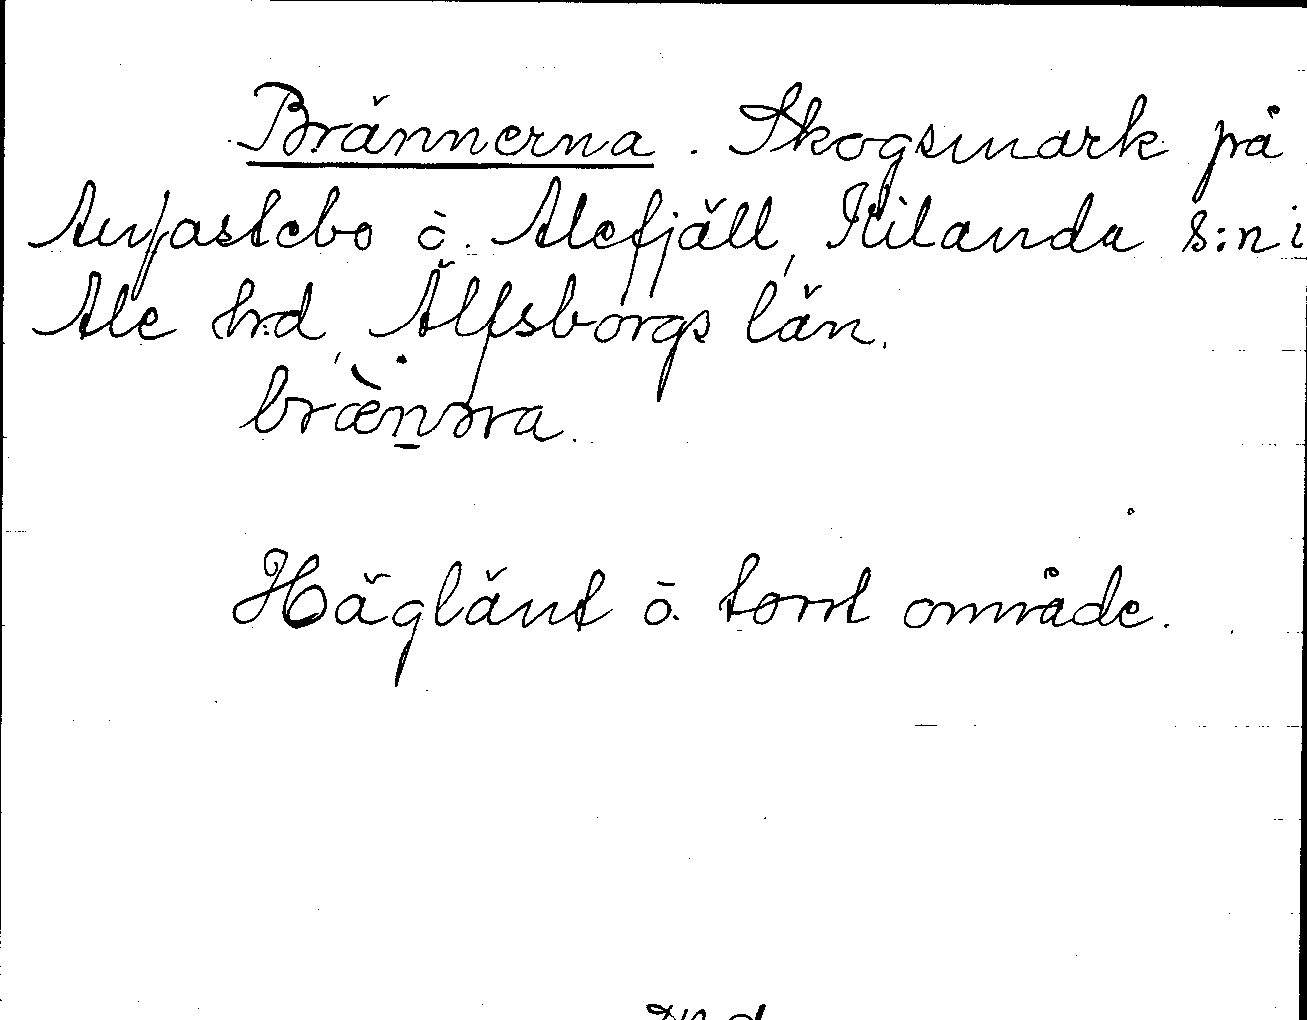 Brännerna. Skogsmark på
Anfastebo å. Alefjäll, Kilanda s:n i
Ale hd, Älfsborgs län.
bræ̀n̲ərna.
Höglänt o. torrt område.